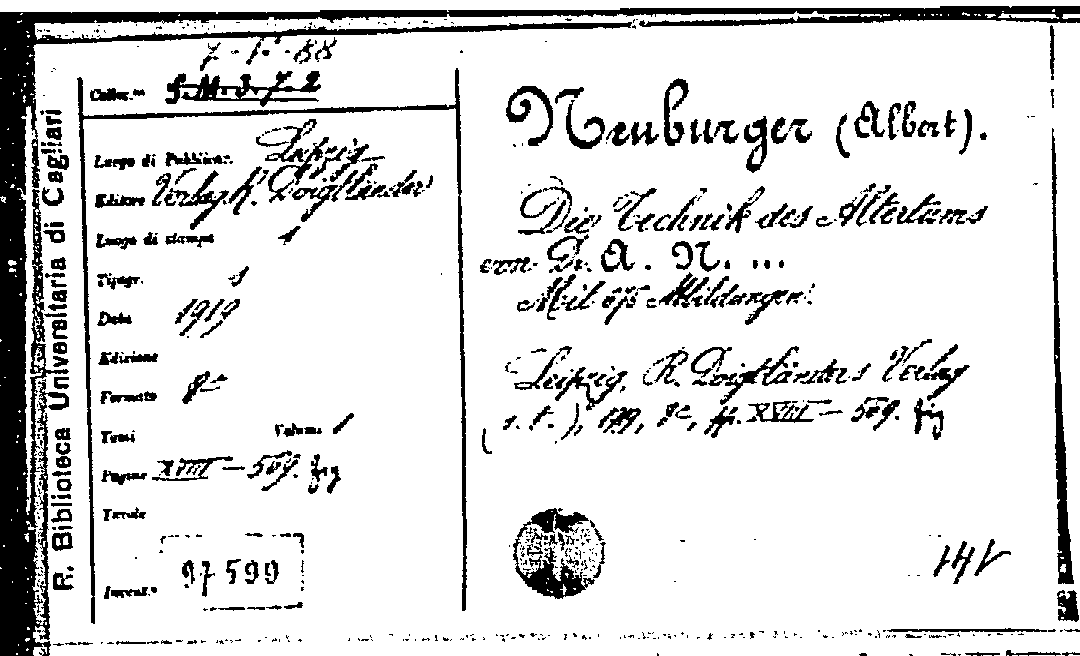 R. Biblioteca Universitaria di Cagliari
7-1-88
Colloc.ne S.M.3.7.2
Luogo di Pubblicaz. Leipzig
Editore Verlag R. Voigtländer
Luogo di stampa
Tipogr.
Data 1919
Edizione
Formato 8°
Tomi Volumi 1
Pagine XVIII - 569. fig
Tavole
Invent.° 97599
Neuburger (Albert).
Die Technik des Altertums
von Dr. A. N. ...
Mit 676 Abbildungen.
Leipzig, R. Voigtländers Verlag
(s. t.), 1919, 8°, pp. XVIII - 569. fig